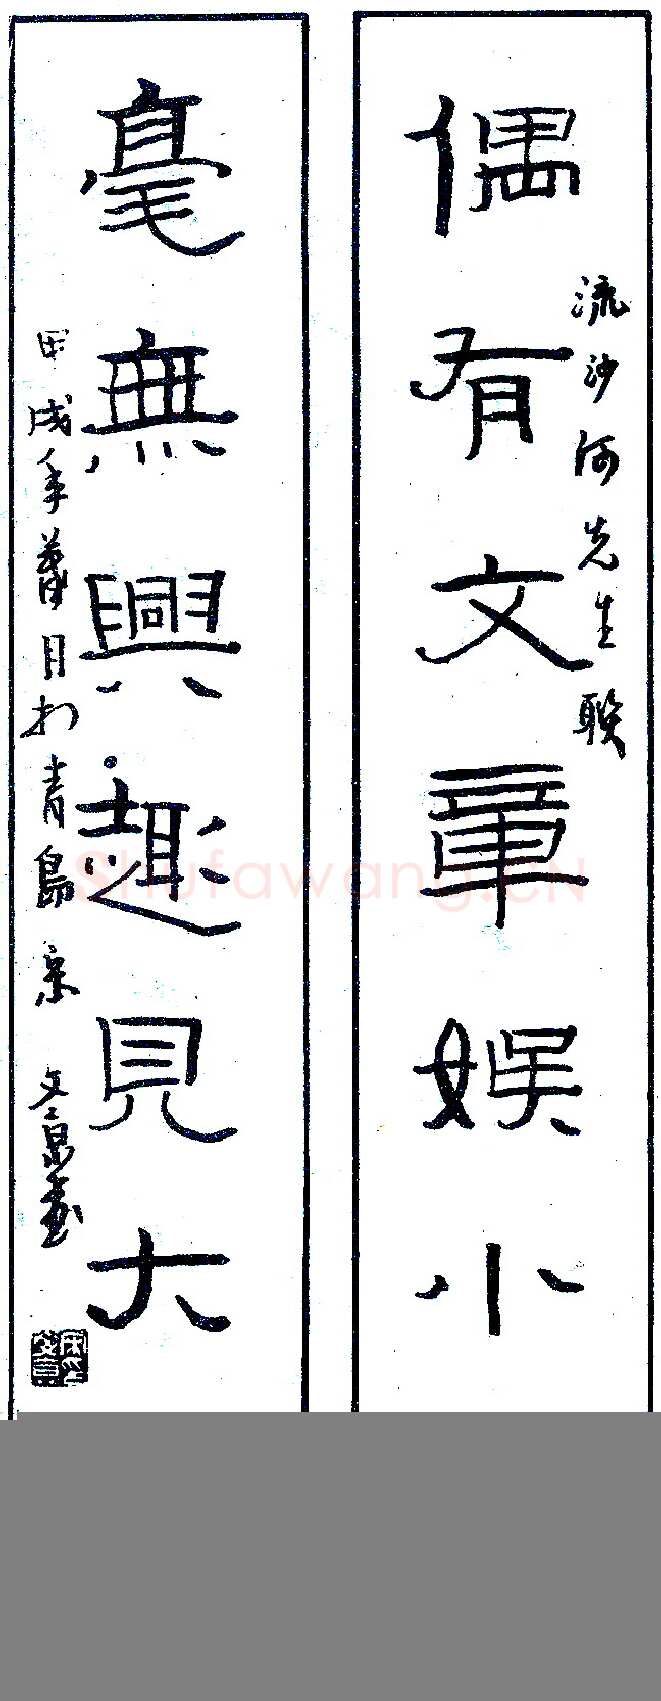 偶有文章娱小
流沙河先生联
毫無興趣見大
甲戌年 夏日于青島 宋文京书
Shufawang.cn